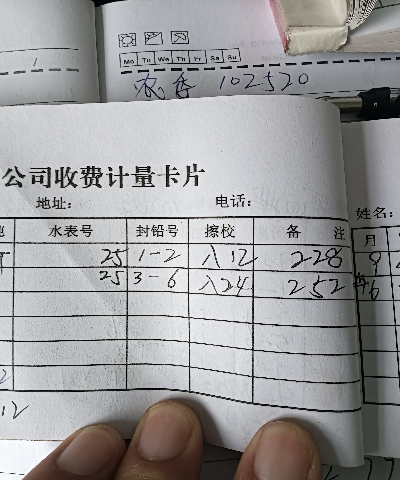 Mo Tu We Th Fr Sa Su
102520
公司收费计量卡片
地址: 电话:
水表号 封铅号 擦校 备 注
25 1-2 八12 228
25 3-6 八24 252
12
姓名:
月
9
6